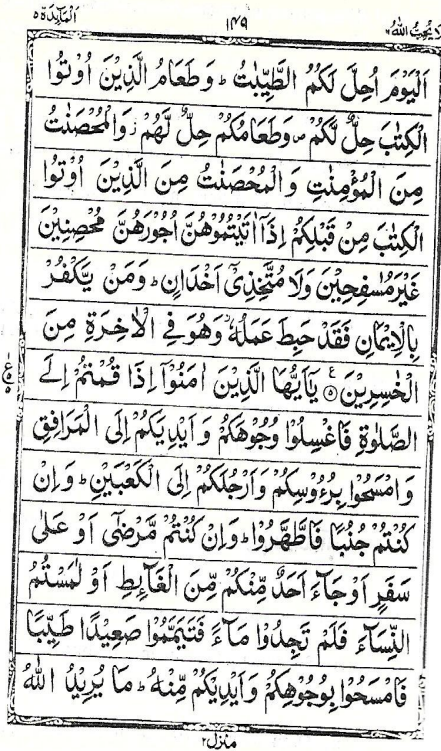 لَا يُحِبُّ اللهُ ٦ ١٤٩ اَلْمَآئِدَة ٥
اَلْيَوْمَ اُحِلَّ لَكُمُ الطَّيِّبٰتُ ؕ وَطَعَامُ الَّذِيْنَ اُوْتُوا
الْكِتٰبَ حِلٌّ لَّكُمْ ۪ وَطَعَامُكُمْ حِلٌّ لَّهُمْ ؗ وَالْمُحْصَنٰتُ
مِنَ الْمُؤْمِنٰتِ وَالْمُحْصَنٰتُ مِنَ الَّذِيْنَ اُوْتُوا
الْكِتٰبَ مِنْ قَبْلِكُمْ اِذَاۤ اٰتَيْتُمُوْهُنَّ اُجُوْرَهُنَّ مُحْصِنِيْنَ
غَيْرَ مُسٰفِحِيْنَ وَلَا مُتَّخِذِيْۤ اَخْدَانٍ ؕ وَمَنْ يَّكْفُرْ
بِالْاِيْمَانِ فَقَدْ حَبِطَ عَمَلُهٗ ؗ وَهُوَ فِي الْاٰخِرَةِ مِنَ
الْخٰسِرِيْنَ ۝٥ ع يٰۤاَيُّهَا الَّذِيْنَ اٰمَنُوْۤا اِذَا قُمْتُمْ اِلَى
الصَّلٰوةِ فَاغْسِلُوْا وُجُوْهَكُمْ وَاَيْدِيَكُمْ اِلَى الْمَرَافِقِ
وَامْسَحُوْا بِرُءُوْسِكُمْ وَاَرْجُلَكُمْ اِلَى الْكَعْبَيْنِ ؕ وَاِنْ
كُنْتُمْ جُنُبًا فَاطَّهَّرُوْا ؕ وَاِنْ كُنْتُمْ مَّرْضٰۤى اَوْ عَلٰى
سَفَرٍ اَوْ جَآءَ اَحَدٌ مِّنْكُمْ مِّنَ الْغَآئِطِ اَوْ لٰمَسْتُمُ
النِّسَآءَ فَلَمْ تَجِدُوْا مَآءً فَتَيَمَّمُوْا صَعِيْدًا طَيِّبًا
فَامْسَحُوْا بِوُجُوْهِكُمْ وَاَيْدِيْكُمْ مِّنْهُ ؕ مَا يُرِيْدُ اللّٰهُ
منزل ٢